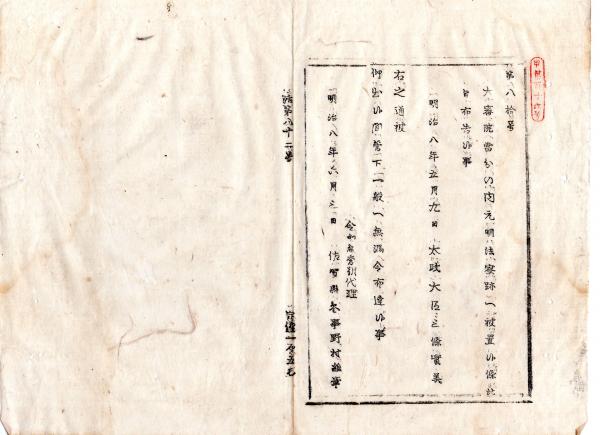 第八拾号
大審院当分の内元明法寮跡へ被置候條此
旨布告候事
明治八年五月九日 太政大臣三條實美
右之通被
仰出候間管下一般へ無漏令布達候事
令
代理
明治八年六月三日 参事野村維章
第八十二